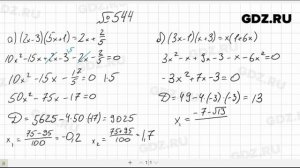 GDZ.RU
№544
а) (2x-3)(5x+1) = 2x + 2/5
10x² - 15x + 2x - 3 - 2x - 2/5 = 0
5
10x² - 15x - 17/5 = 0 | · 5
50x² - 75x - 17 = 0
D = 5625 - 4·50·(-17) = 9025
x₁ = 75-95/100 = -0,2 x₂ = 75+95/100 = 1,7
б) (3x-1)(x+3) = x(1+6x)
3x² - x + 9x - 3 - x - 6x² = 0
-3x² + 7x - 3 = 0
D = 49 - 4·(-3)·(-3) = 13
x₁ = -7-√13
GDZ.RU